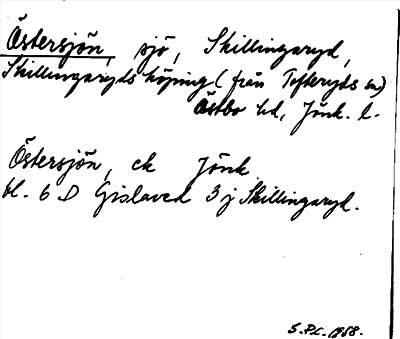 Östersjön, sjö, Skillingaryd,
Skillingaryds köping (från Tofteryds sn)
Östbo hd, Jönk. l.
Östersjön, ek Jönk
bl. 6 D Gislaved 3 j Skillingaryd.
S.P.L. 1958.